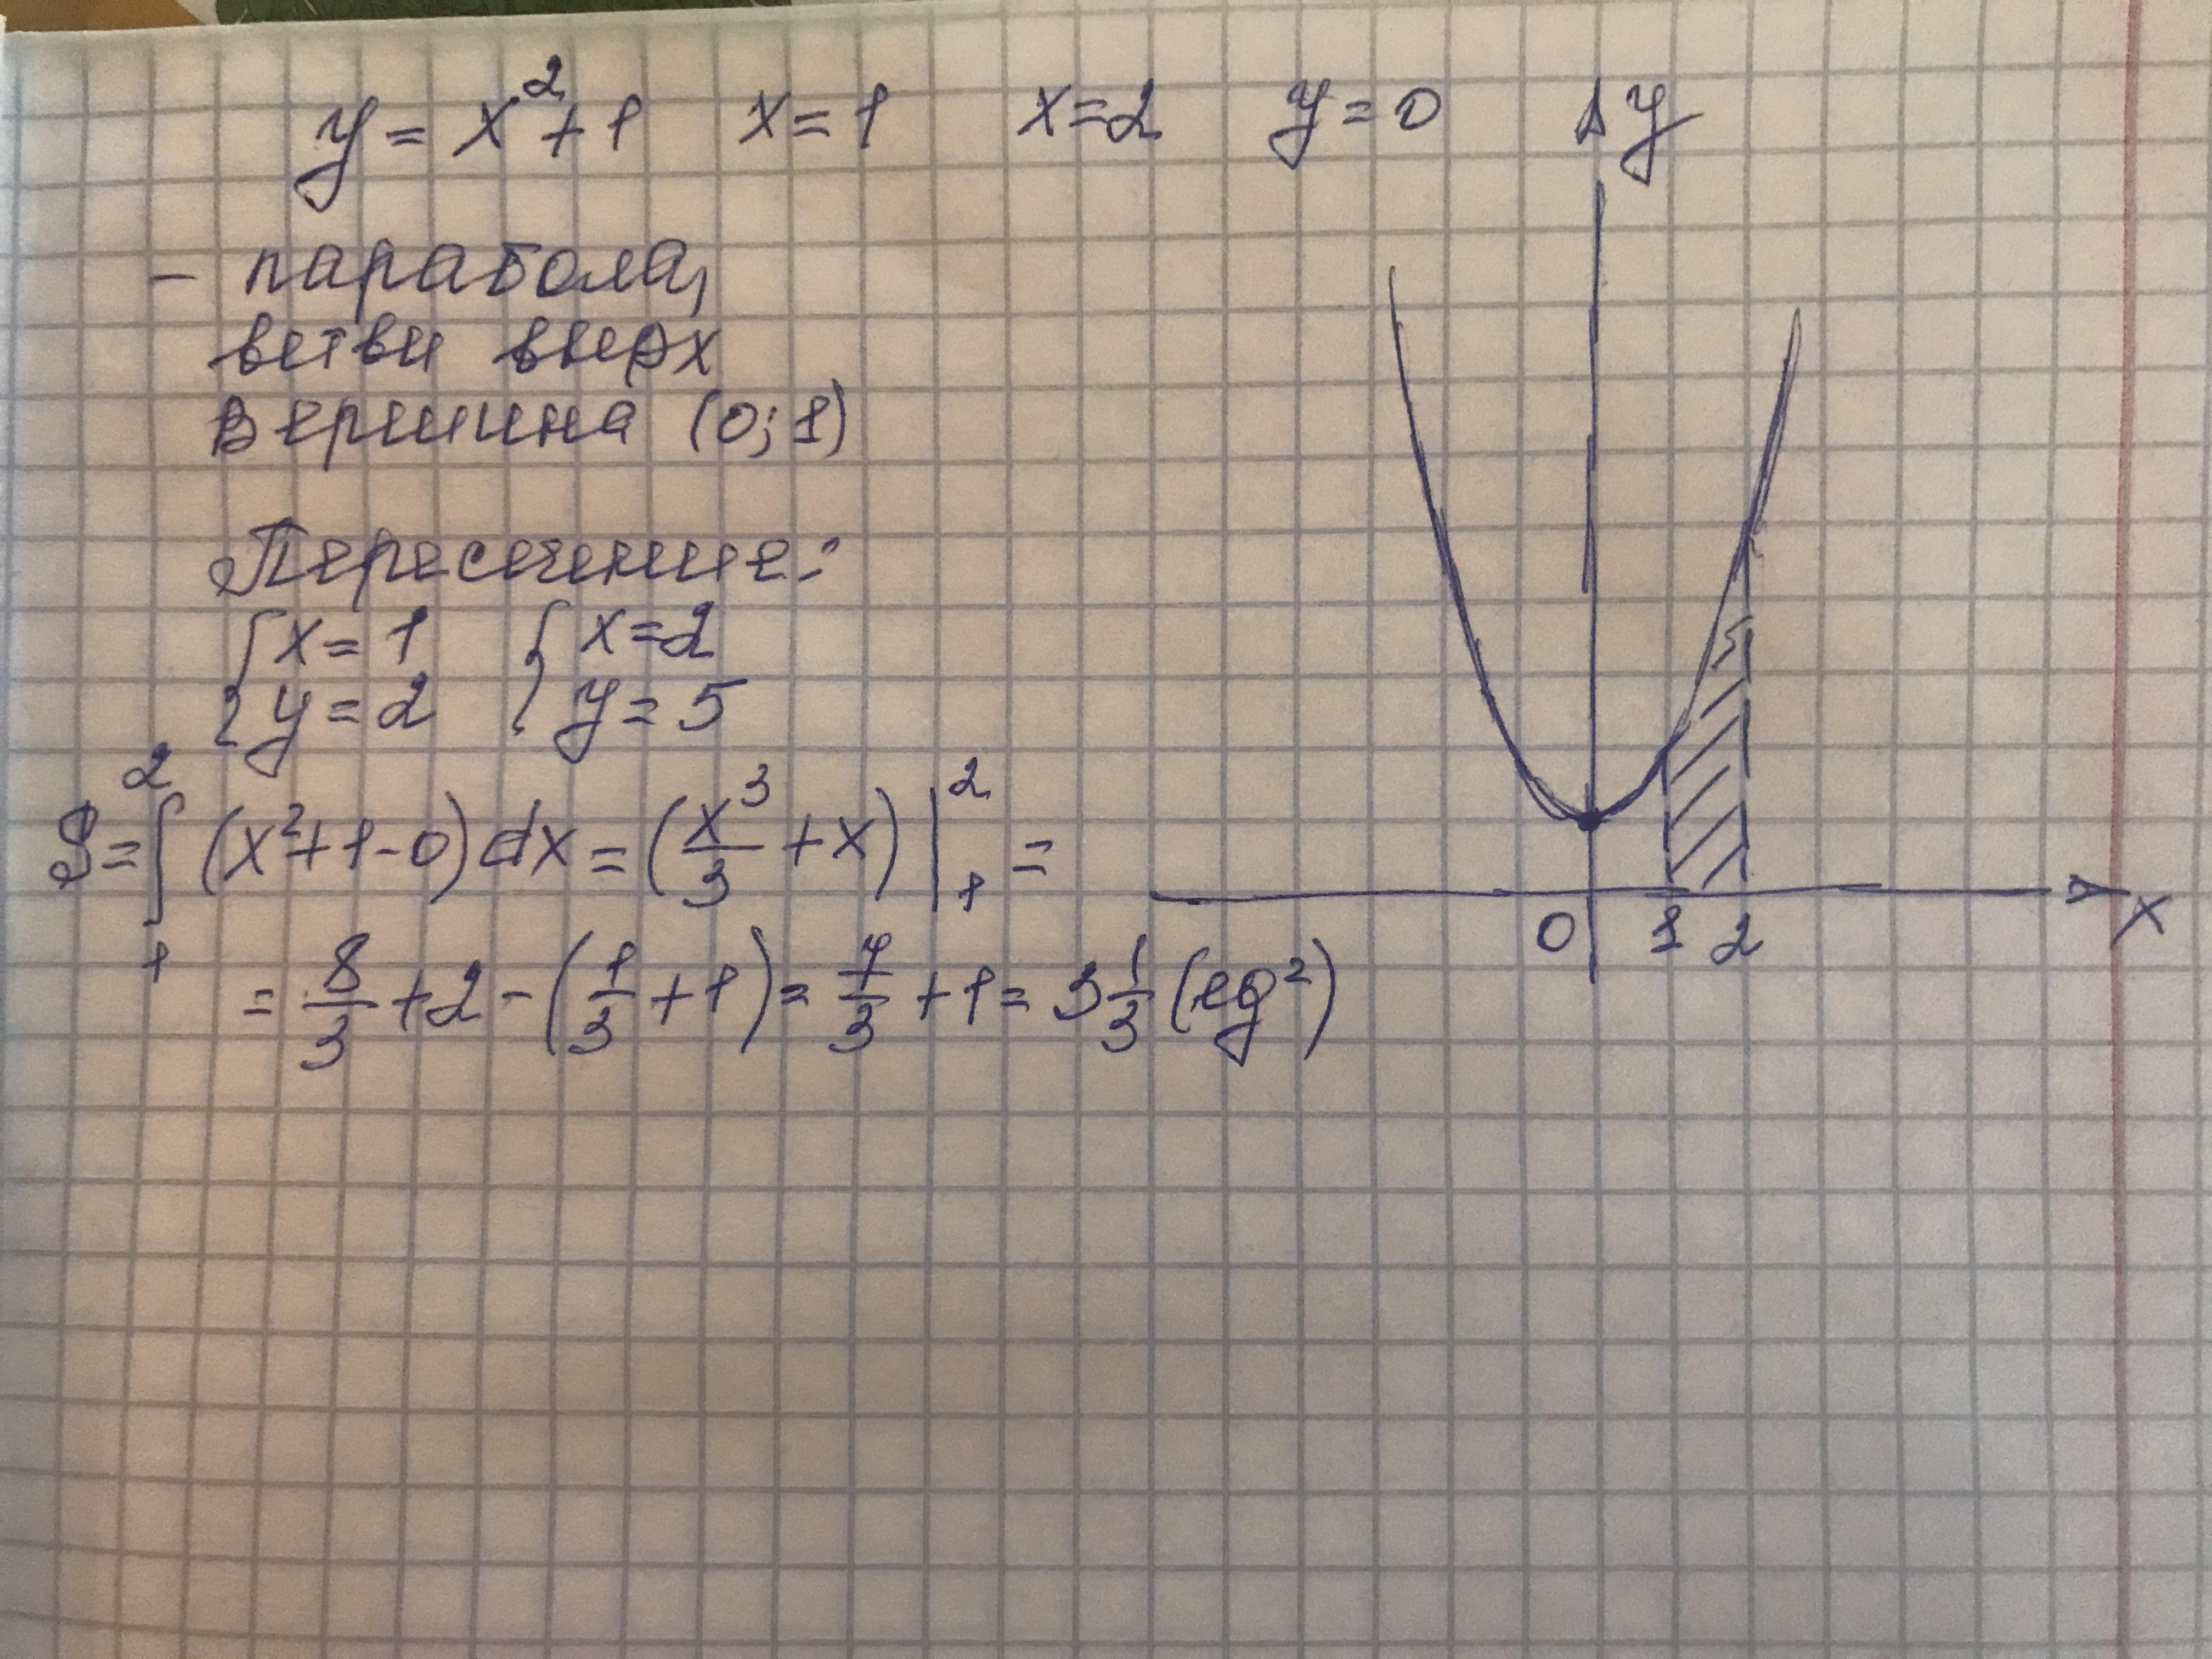 y = x² + 1   x = 1   x = 2   y = 0
– парабола,
ветви вверх
вершина (0; 1)
Пересечение:
{ x = 1   { x = 2
{ y = 2   { y = 5
S = ∫₁² (x² + 1 - 0) dx = (x³/3 + x) |₁² =
= 8/3 + 2 - (1/3 + 1) = 7/3 + 1 = 3 1/3 (ед²)
y
0 1 2 x